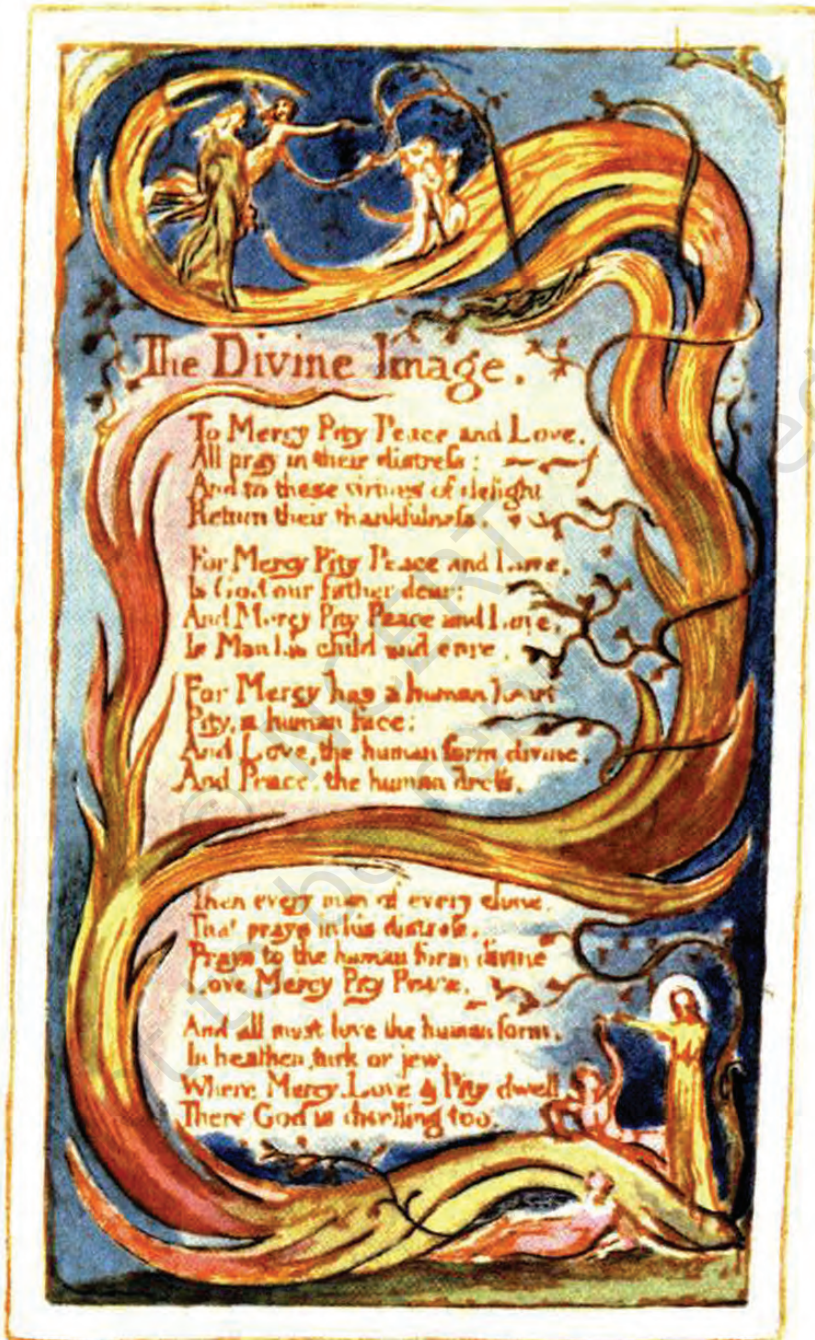 The Divine Image.
To Mercy Pity Peace and Love,
All pray in their distress:
And to these virtues of delight
Return their thankfulness.
For Mercy Pity Peace and Love,
Is God our father dear:
And Mercy Pity Peace and Love,
Is Man his child and care.
For Mercy has a human heart
Pity, a human face:
And Love, the human form divine,
And Peace, the human dress.
Then every man of every clime,
That prays in his distress,
Prays to the human form divine
Love Mercy Pity Peace.
And all must love the human form,
In heathen, turk or jew.
Where Mercy, Love & Pity dwell,
There God is dwelling too.
© NCERT